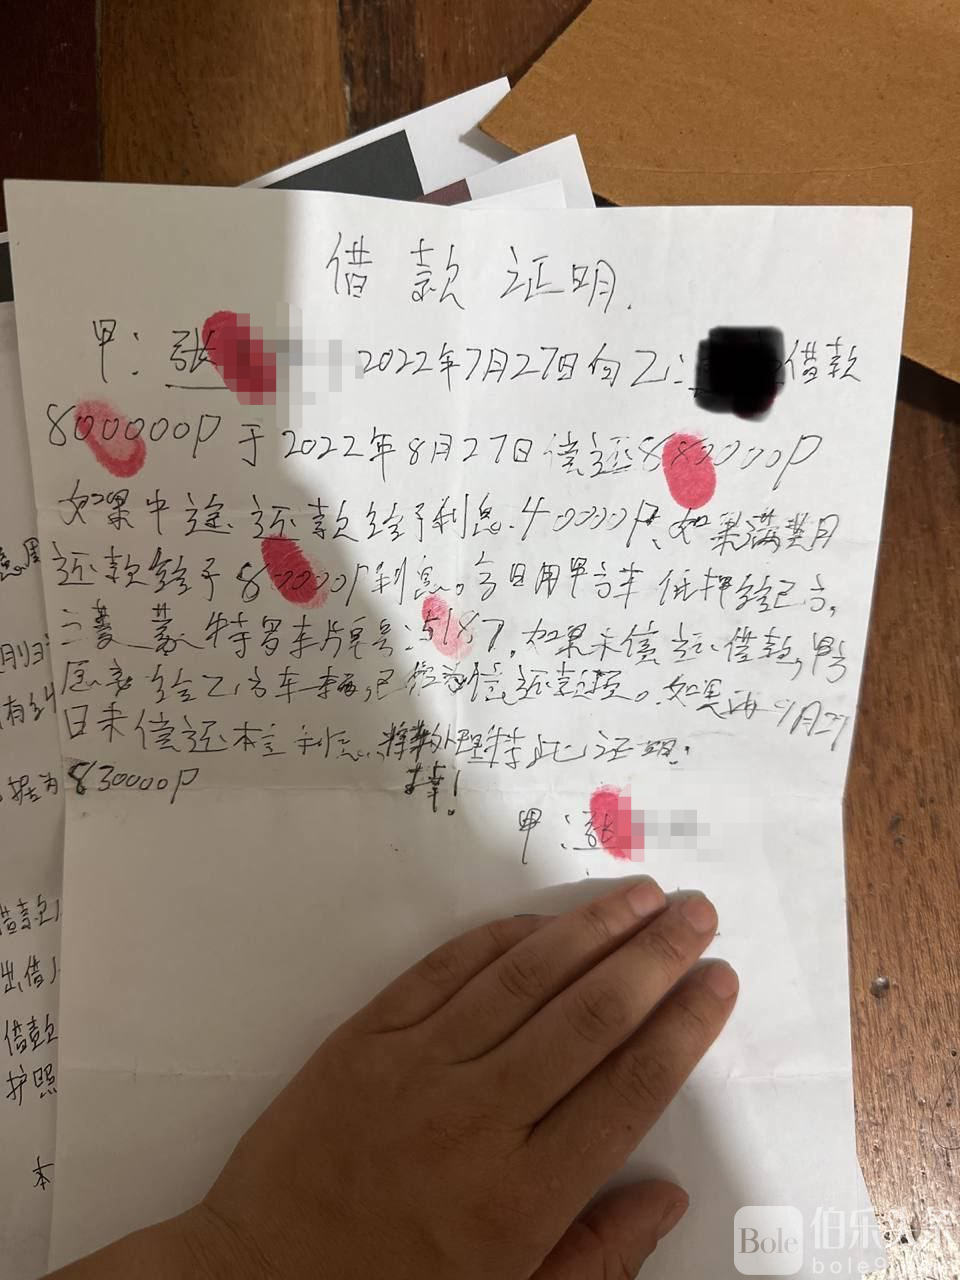 借款证明.
甲：张 2022年7月27日向乙： 借款
800000P于2022年8月27日偿还880000P
如果中途还款给予利息.40000P.如果满整月
还款给予80000P利息。今日用甲方车抵押给已方,
三菱蒙特罗车片皂号:5187,如果未偿还借款,甲方
愿意给乙方车辆,已 偿还 。如果 9月27
日未偿还本 利息 将车处理特此证明.
830000P
车!
甲：张
月归
有纠
据为
借款
出借人
借款
护照
本
Bole 伯乐头条
bole9